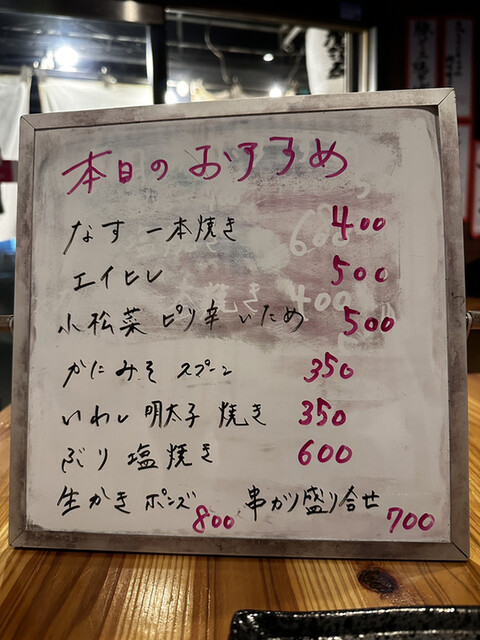 本日のおすすめ
なす 一本焼き 400
エイヒレ 500
小松菜 ピリ辛 いため 500
かにみそ スプーン 350
いわし 明太子 焼き 350
ぶり 塩焼き 600
生かき ポンズ 800 串カツ盛り合せ 700